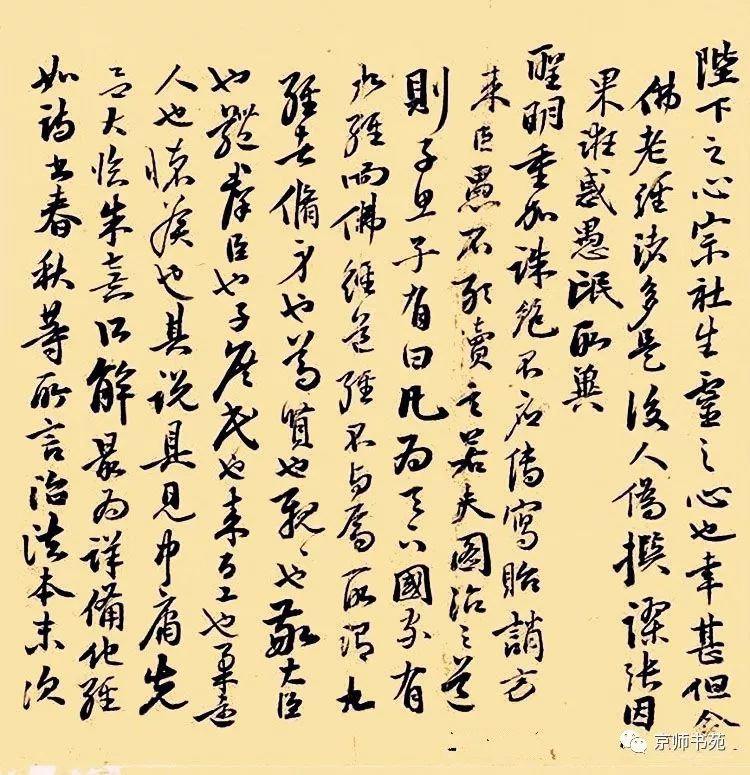 陛下之心宗社生靈之心也幸甚但今
佛老經法多是後人偽撰謬張因
果誑惑愚氓取興
聖明重加誅絕不應傳寫貽誚方
來臣愚不敢贊之若夫圖治之道
則子思子有曰凡為天下國家有
九經而佛經道經不與焉所謂九
經者脩身也尊賢也親〻也敬大臣
也體群臣也子庶民也來百工也柔遠
人也懷諸侯也其說具見中庸先
言大臣朱熹以解最為詳備他經
如詩書春秋等所言治法本末次
京师书苑